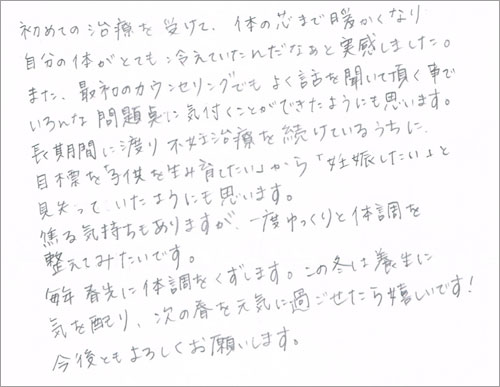 初めての治療を受けて、体の芯まで暖かくなり
自分の体がとても冷えていたんだなぁと実感しました。
また、最初のカウンセリングでもよく話を聞いて頂く事で
いろんな問題点に気付くことができたようにも思います。
長期間に渡り不妊治療を続けているうちに、
目標を「子供を生み育てたい」から「妊娠したい」と
見失っていたようにも思います。
焦る気持ちもありますが、一度ゆっくりと体調を
整えてみたいです。
毎年春先に体調をくずします。この冬は養生に
気を配り、次の春を元気に過ごせたら嬉しいです!
今後ともよろしくお願いします。